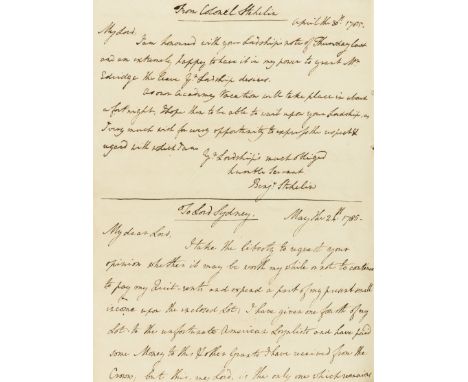 From Colonel Stehelin
April the 30th. 1785.
My Lord.
I am honored with your Lordship's note of Thursday last
and am extremely happy to have it in my power to grant Mr
the leave Yr Lordship desires.
As our Academy Vacation will take place in about
a fortnight, I hope then to be able to wait upon your Lordship, as
I very much wish for every opportunity to express the respect &
regard with which I am
Yr Lordship's most obliged
humble Servant
Benjn Stehelin
To Lord Sydney.
May the 24th. 1785.
My dear Lord.
I take the liberty to request your
opinion whether it may be worth my while or not to continue
to pay my Quit-rents and expend a part of my present small
income upon the enclosed Lot; I have given one fourth of my
Lot to the unfortunate American Loyalists and have paid
some Money to this & other Grants I have received from the
Crown, but this, my Lord, is the only one which remains